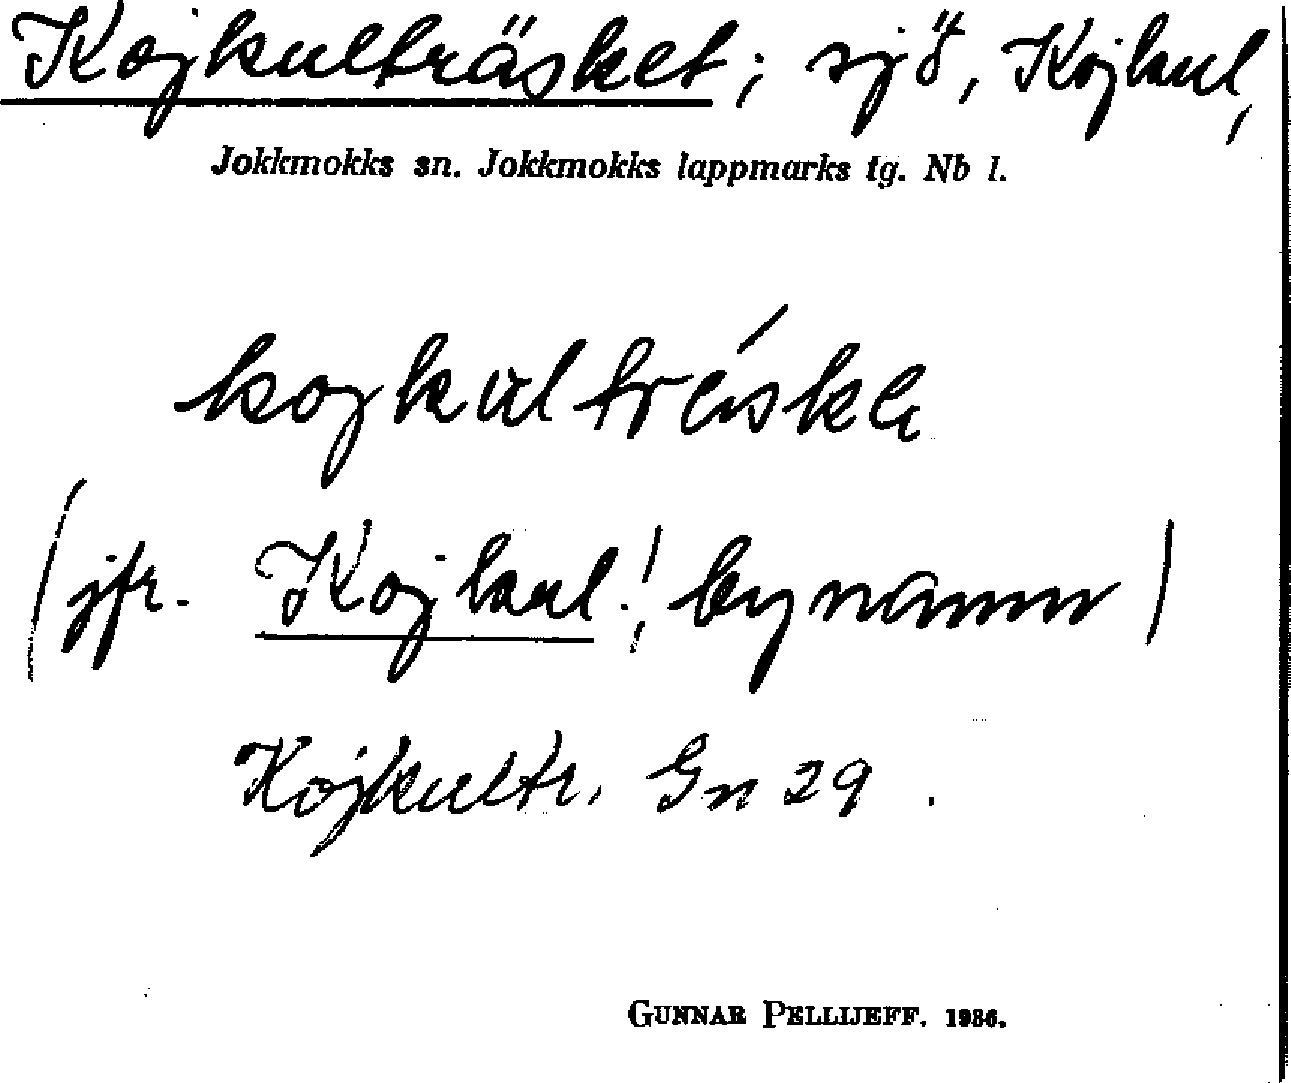 Kojkulträsket; sjö, Kojkul,
Jokkmokks sn. Jokkmokks lappmarks tg. Nb l.
kojkul tréska
(jfr. Kojkul! bynamn)
Kojkultr. Gn 29.
GUNNAR PELLIJEFF. 1936.